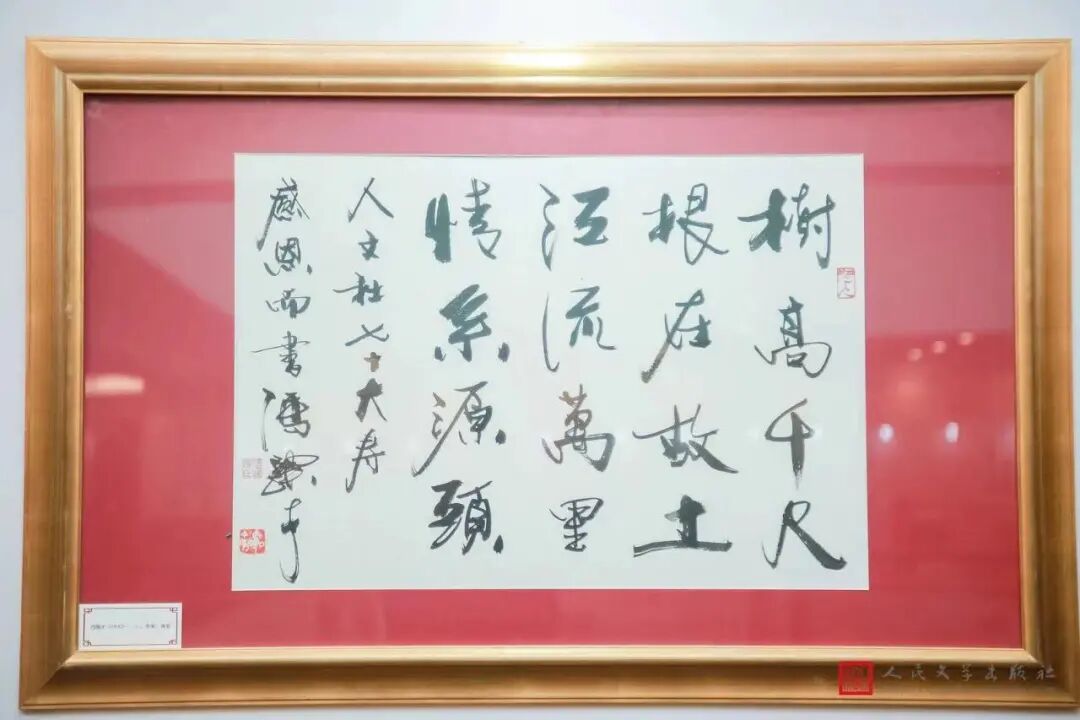 樹高千尺
根在故土
江流萬里
情系源頭
人文社七十大寿
感恩而書馮骥才
人民文学出版社